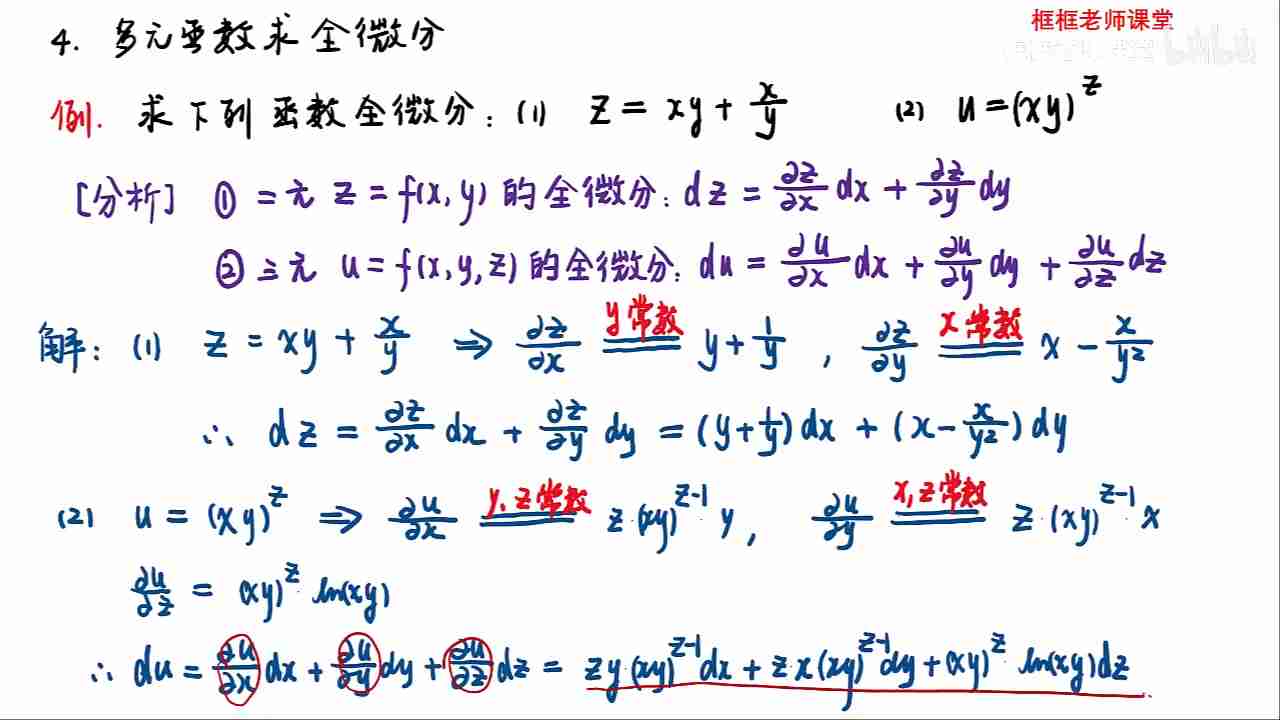 框框老师课堂
bilibili
4. 多元函数求全微分
例. 求下列函数全微分: (1) z = xy + x/y (2) u = (xy)^z
[分析] ① 二元 z = f(x,y) 的全微分: dz = ∂z/∂x dx + ∂z/∂y dy
② 三元 u = f(x,y,z) 的全微分: du = ∂u/∂x dx + ∂u/∂y dy + ∂u/∂z dz
解: (1) z = xy + x/y ⇒ ∂z/∂x =(y常数)= y + 1/y , ∂z/∂y =(x常数)= x - x/y²
∴ dz = ∂z/∂x dx + ∂z/∂y dy = (y + 1/y) dx + (x - x/y²) dy
(2) u = (xy)^z ⇒ ∂u/∂x =(y,z常数)= z·(xy)^(z-1)·y , ∂u/∂y =(x,z常数)= z·(xy)^(z-1)·x
∂u/∂z = (xy)^z ln(xy)
∴ du = ∂u/∂x dx + ∂u/∂y dy + ∂u/∂z dz = zy·(xy)^(z-1) dx + zx(xy)^(z-1) dy + (xy)^z ln(xy) dz